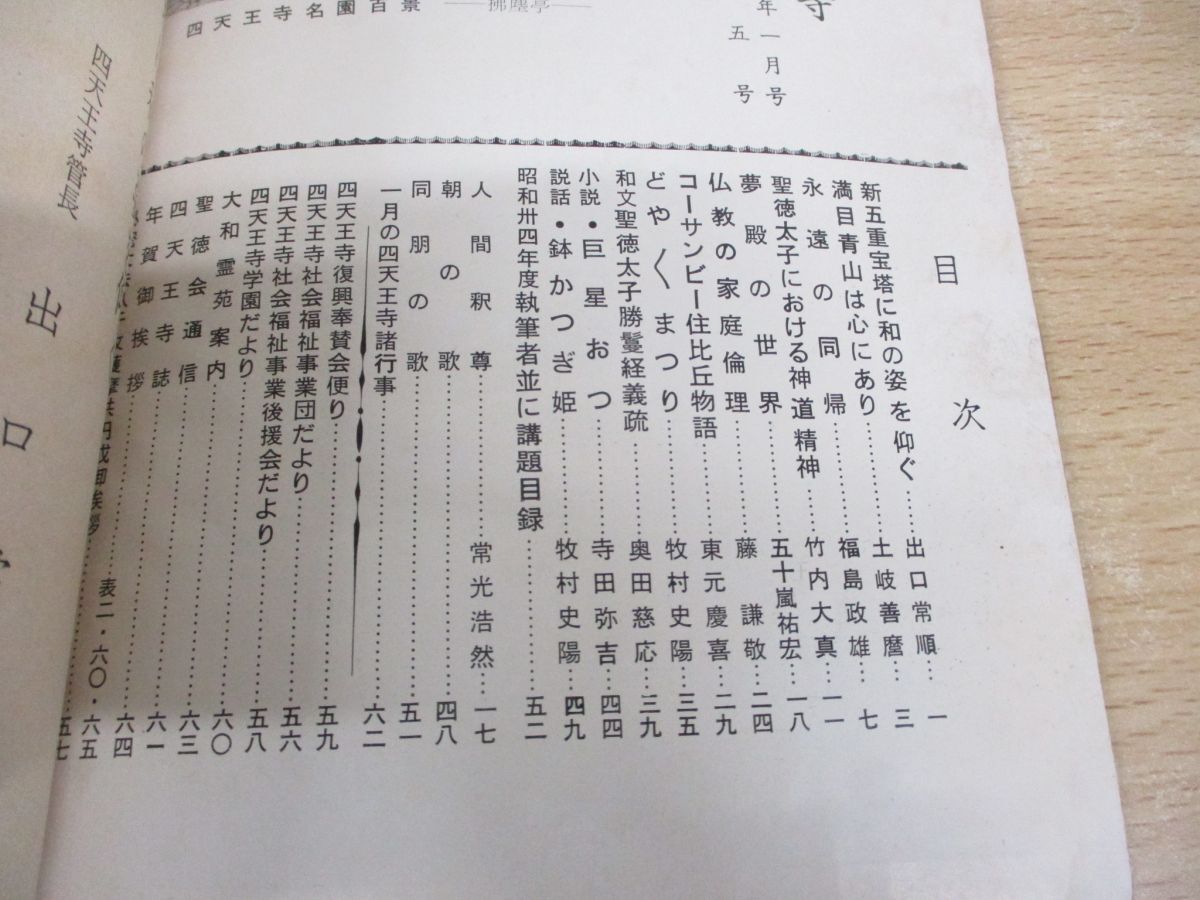 寺
年一月号
五号
四天王寺名園百景
――拂塵亭――
目次
新五重宝塔に和の姿を仰ぐ……出口常順……一
満目青山は心にあり……土岐善麿……三
永遠の同帰……福島政雄……七
聖徳太子における神道精神……竹内大真……一一
夢殿の世界……五十嵐祐宏……一八
仏教の家庭倫理……藤謙敬……二四
コーサンビー住比丘物語……東元慶喜……二九
どや〱まつり……牧村史陽……三五
和文聖徳太子勝鬘経義疏……奥田慈応……三九
小説・巨星おつ……寺田弥吉……四四
説話・鉢かつぎ姫……牧村史陽……四九
昭和卅四年度執筆者並に講題目録……五二
人間釈尊……常光浩然……一七
朝の歌……四八
同朋の歌……五一
一月の四天王寺諸行事……六二
四天王寺復興奉賛会便り……五九
四天王寺社会福祉事業団だより……五六
四天王寺社会福祉事業後援会だより……五八
四天王寺学園だより……六〇
大和霊苑案内……六三
聖徳会通信……六一
四天王寺誌……六四
年賀御挨拶……表二・六〇・六五
円成御挨拶……五七
四天王寺管長
出口